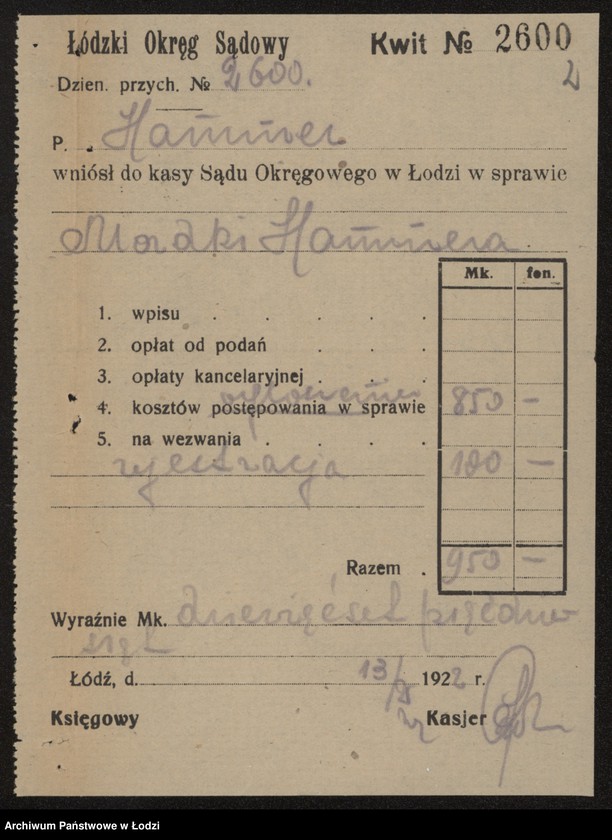 Łódzki Okręg Sądowy Kwit № 2600
Dzien. przych. № 2600. 2
P. Hammer
wniósł do kasy Sądu Okręgowego w Łodzi w sprawie
Mordki Hammera
Mk. fen.
1. wpisu . . . . .
2. opłat od podań . . .
3. opłaty kancelaryjnej . . .
ogłoszenie
4. kosztów postępowania w sprawie 850 —
5. na wezwania . . . . .
rejestracja 100 —
Razem . 950 —
Wyraźnie Mk. dziewięćset pięćdzie
siąt
Łódź, d. 13/ 1922 r.
Księgowy Kasjer
Archiwum Państwowe w Łodzi